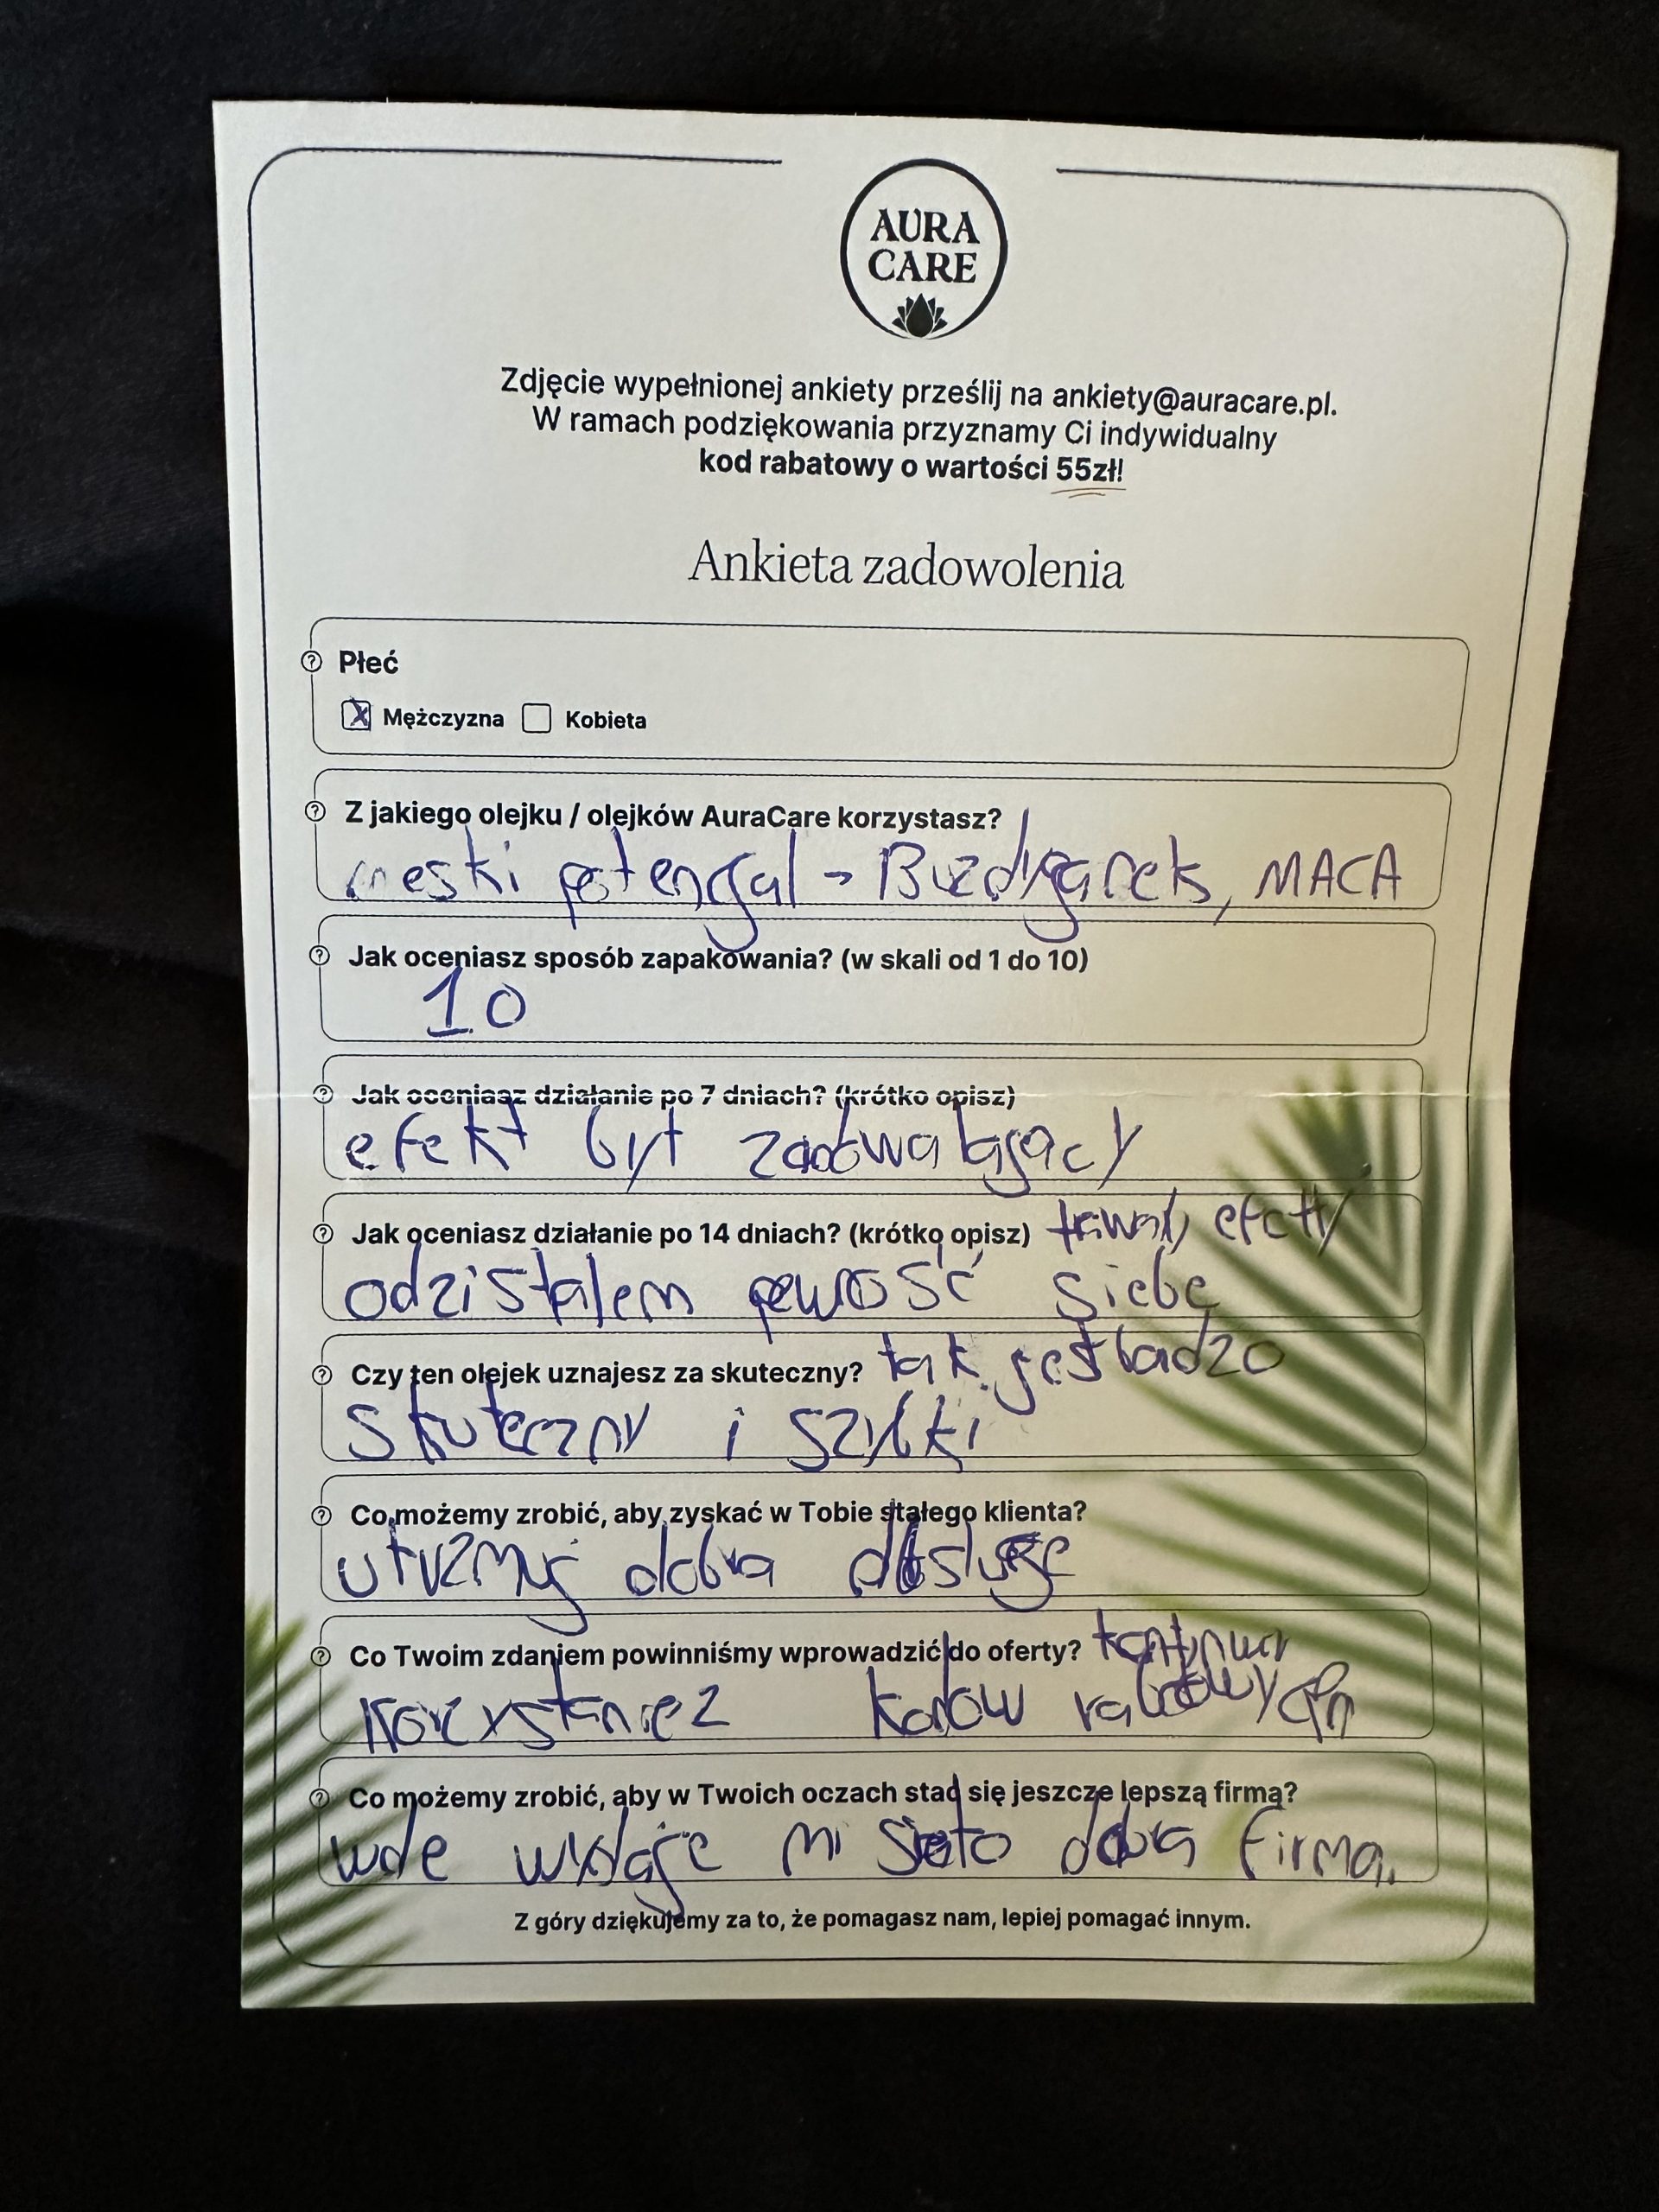 AURA
CARE
Zdjęcie wypełnionej ankiety prześlij na ankiety@auracare.pl.
W ramach podziękowania przyznamy Ci indywidualny
kod rabatowy o wartości 55zł!
Ankieta zadowolenia
Płeć
Mężczyzna Kobieta
Z jakiego olejku / olejków AuraCare korzystasz?
meski potencjal - Buzdyganek, MACA
Jak oceniasz sposób zapakowania? (w skali od 1 do 10)
10
Jak oceniasz działanie po 7 dniach? (krótko opisz)
efekt był zadowalający
Jak oceniasz działanie po 14 dniach? (krótko opisz) trwały efekty
odzistałem pewność siebe
Czy ten olejek uznajesz za skuteczny? tak jest badzo
skuteczny i szybki
Co możemy zrobić, aby zyskać w Tobie stałego klienta?
dobra obsluge
Co Twoim zdaniem powinniśmy wprowadzić do oferty?
kodów rabatowych
Co możemy zrobić, aby w Twoich oczach stać się jeszcze lepszą firmą?
wydaje mi sie to dobra firma.
Z góry dziękujemy za to, że pomagasz nam, lepiej pomagać innym.